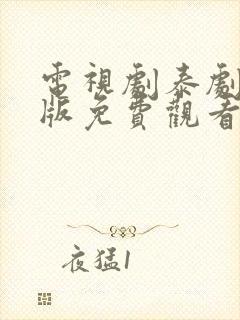 電視劇泰劇
版免費觀看
夜猛1